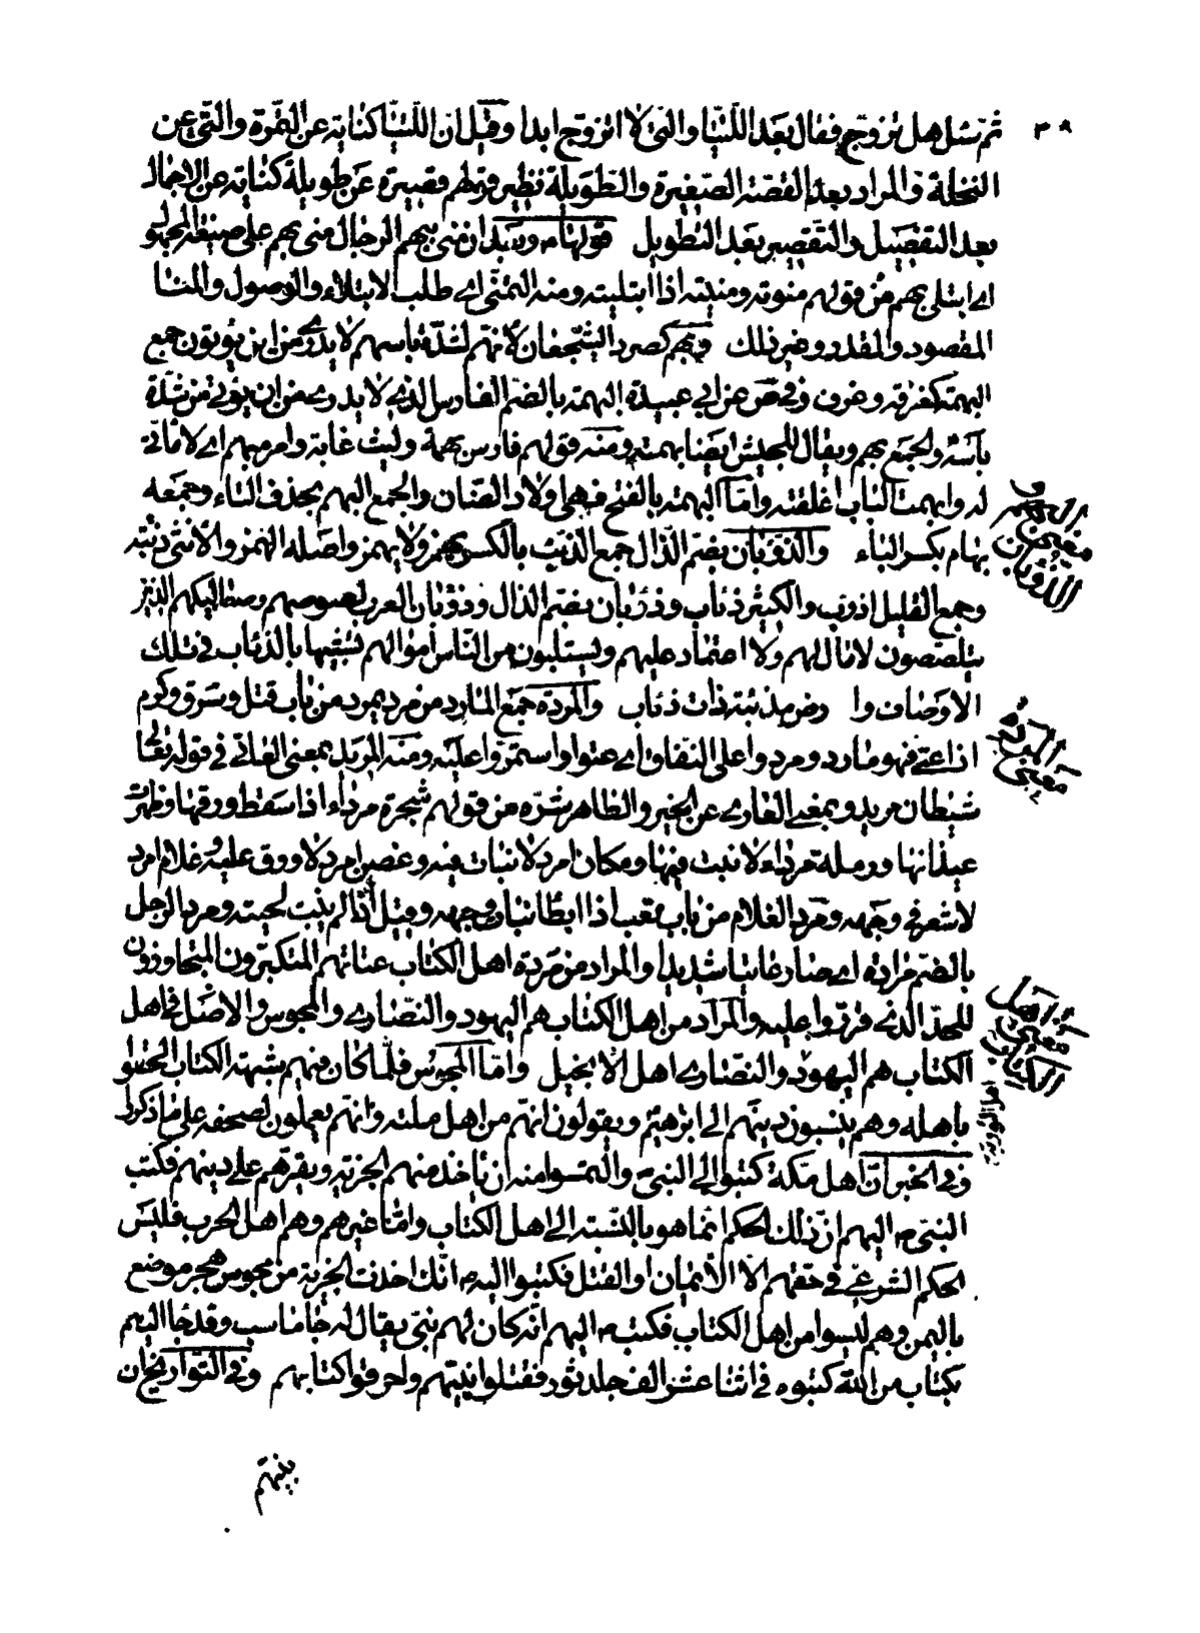 ٣٩
ثم سئل هل تزوج فقال بعد اللتيا والتي لا اتزوج ابدا وقيل ان اللتيا كناية عن التمرة والتي عن
النخلة والمراد بعد القصة الصغيرة والطويلة نظير قولهم قصيرة عن طويلة كناية عن الاجمال
بعد التفصيل والتقصير بعد التطويل قولها ع وبعد ان منى ببهم الرجال منى بهم على صيغة المجهول
اى ابتلى بهم من قولهم منوته ومنيته اذا ابتليته ومنه التمنى اى طلب الابتلاء والوصول والمنا
المقصود والمقدر وغير ذلك وبهم كصرد الشجعان لانهم لشدة باسهم لا يدرى من اين يؤتون جمع
البهمة كغرفة وغرف وفى ص عن ابى عبيدة البهمة بالضم الفارس الذى لا يدرى من اين يؤتى من شدة
بأسه والجمع بهم ويقال للجيش ايضا بهمة ومنه قولهم فارس بهمة وليث غابة وامر مبهم اى لا مأتى
له وابهمت الباب اغلقته واما البهمة بالفتح فهى اولاد الضان والجمع البهم بحذف التاء وجمعه
بهام بكسر الباء والذؤبان بضم الذال جمع الذئب بالكسر يهمز ولا يهمز واصله الهمز والانثى ذئبة
وجمع القليل اذؤب والكثير ذئاب وذؤبان بضم الذال وذؤبان العرب لصوصهم وصعاليكهم الذين
يتلصصون لا مال لهم ولا اعتماد عليهم ويستلبون من الناس اموالهم تشبيها بالذئاب فى تلك
الاوصاف وارض مذئبة ذات ذئاب والمردة جمع المارد من مرد يمرد من باب قتل وسرق وكرم
اذا عتى فهو مارد ومردوا على النفاق اى عتوا واستمروا عليه ومنه المريد بمعنى العاتى فى قوله تعالى
شيطان مريد وبمعنى العارى عن الخير والظاهر شره من قولهم شجرة مرداء اذا سقط ورقها وظهرت
عيدانها ورملة مرداء لا نبت فيها ومكان امرد لا نبات فيه وغصن امرد لا ورق عليه وغلام امرد
لا شعر فى وجهه ومرد الغلام من باب تعب اذا ابطا نبات وجهه وقيل اذا لم ينبت لحيته ومرد الرجل
بالضم مرادة اى صار عاتيا شديدا والمراد من مردة اهل الكتاب عتاتهم المتكبرون المتجاوزون
للحد الذى قرروا عليه والمراد من اهل الكتاب هم اليهود والنصارى والمجوس والاصل فى اهل
الكتاب هم اليهود والنصارى اهل الانجيل واما المجوس فلما كان فيهم شبهة الكتاب الحقوا
باهله وهم ينسبون دينهم الى ابرهيم ويقولون انهم من اهل ملته وانهم يعملون لصحفه على ما ذكروا
وفى الخبر ان اهل مكة كتبوا الى النبى والتمسوا منه ان ياخذ منهم الجزية ويقرهم على دينهم فكتب
النبى ص اليهم ان ذلك الحكم انما هو بالنسبة الى اهل الكتاب واما غيرهم وهم اهل الحرب فليس
الحكم الشرعى فى حقهم الا الايمان او القتل فكتبوا اليه ص انك اخذت الجزية من مجوس هجر موضع
باليمن وهم ليسوا من اهل الكتاب فكتب ص اليهم انه كان لهم نبى يقال له جاماسب وقد جاءهم
بكتاب من الله كتبوه فى اثنا عشر الف جلد ثور فقتلوا نبيهم واحرقوا كتابهم وفى التواريخ ان
بينهم
معنى
الذؤبان
المردة
معنى
اهل
معنى
الكتاب
اهل التورية